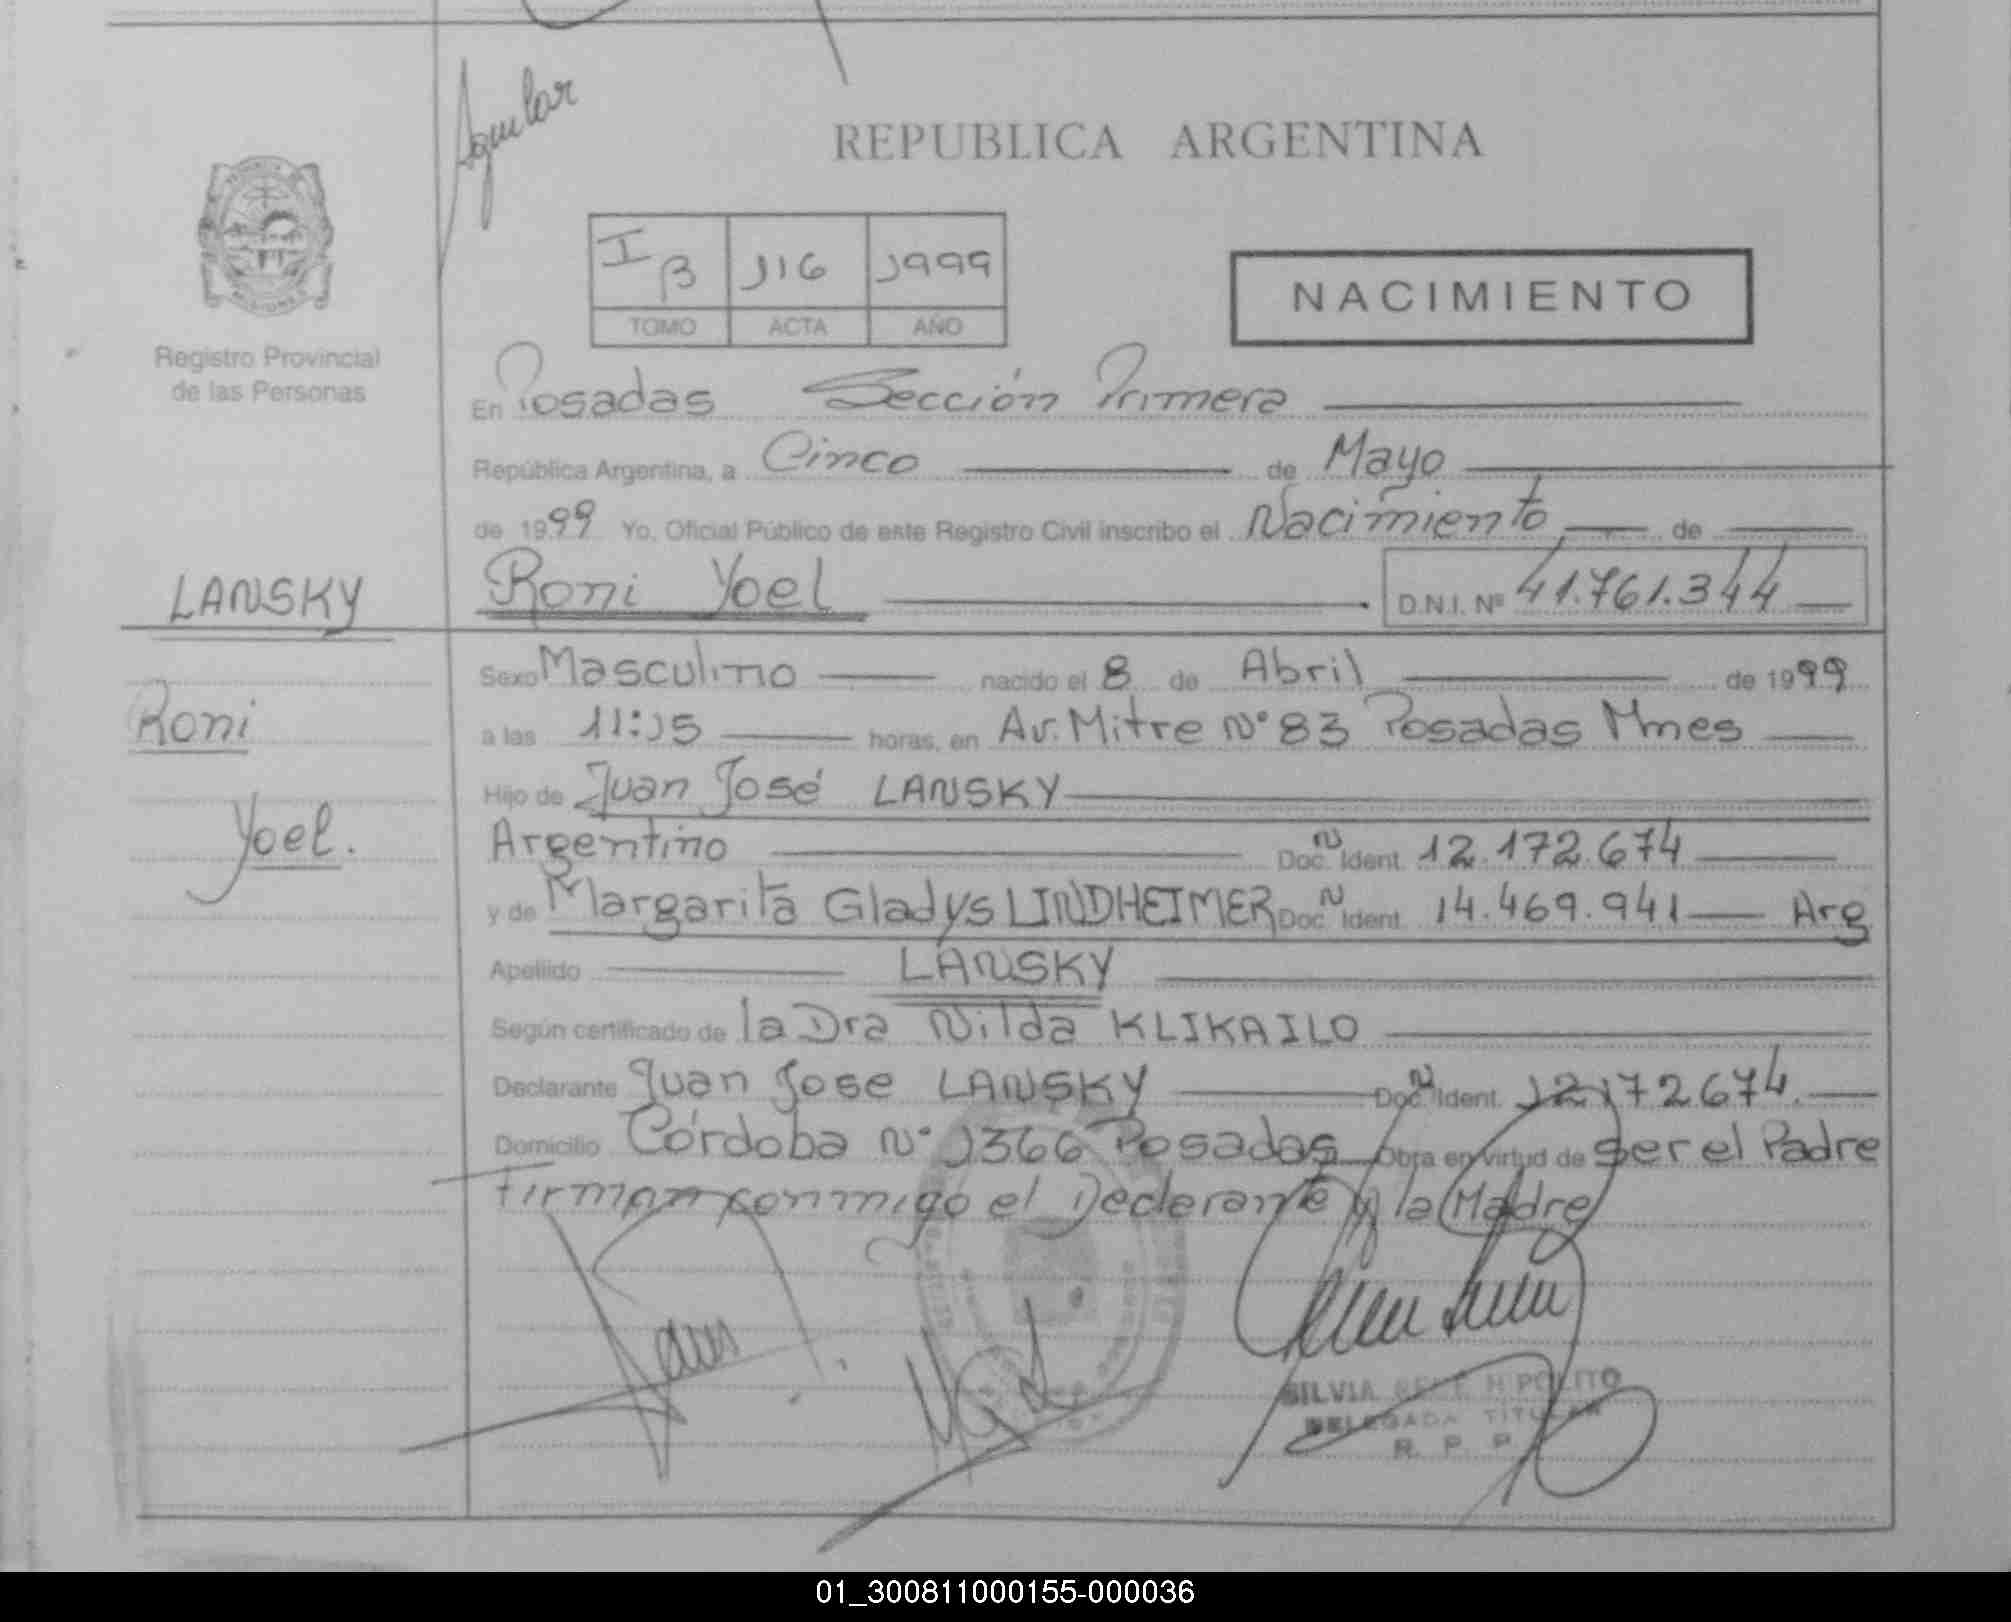 Aguilar
REPUBLICA ARGENTINA
I B 116 1999
TOMO ACTA AÑO
NACIMIENTO
MISIONES
Registro Provincial
de las Personas
En Posadas Sección Primera
República Argentina, a Cinco de Mayo
de 1999 Yo, Oficial Público de este Registro Civil inscribo el Nacimiento de
LANSKY
Roni Yoel D.N.I. Nº 41.761.344
Sexo Masculino nacido el 8 de Abril de 1999
Roni
a las 11:15 horas, en Av. Mitre Nº 83 Posadas Mnes
Hijo de Juan José LANSKY
Yoel.
Argentino Doc. N Ident. 12.172.674
y de Margarita Gladys LINDHEIMER Doc. N Ident. 14.469.941 Arg
Apellido LANSKY
Según certificado de la Dra Nilda KLIKAILO
Declarante Juan Jose LANSKY Doc. N Ident. 12172.674.
Domicilio Córdoba Nº 1366 Posadas Obra en virtud de ser el Padre
Firman conmigo el Declarante y la Madre
SILVIA HIPOLITO
DELEGADA TITULAR
R. P. P.
01_300811000155-000036